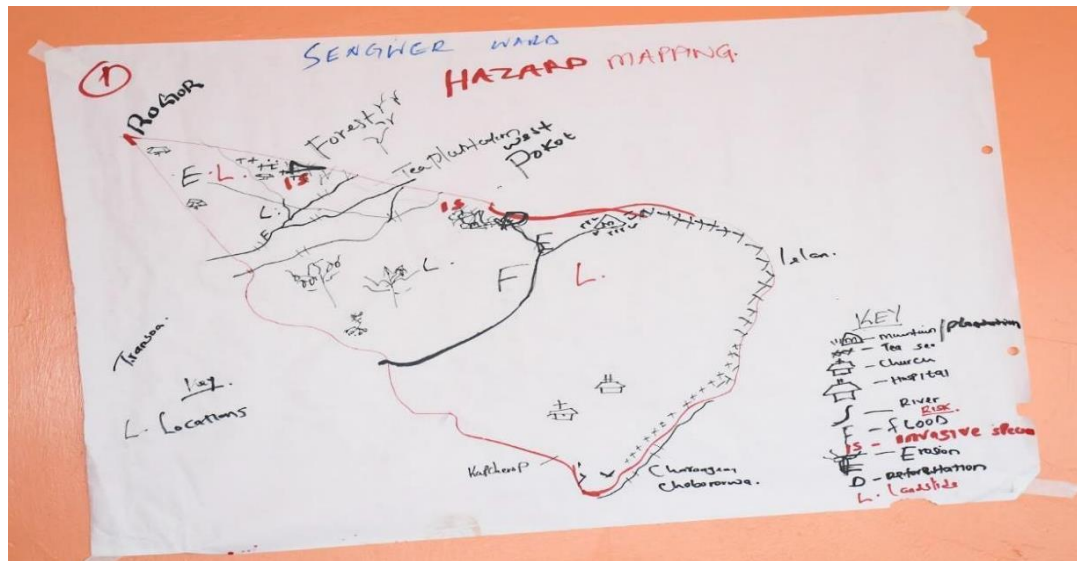 SENGWER WARD
1
HAZARD MAPPING.
ROGOR
Forest
Tea plantation
west
Pokot
E. L.
IS
L.
E
IS
E
L.
F
L.
Lelan.
Transoa.
Key.
L. Locations
Kapcherop
Chobororwa.
KEY
mountain/plantation
Church
Hospital
River
RISK.
F - FLOOD
IS - invasive species
E - Erosion
D - Deforestation
L. Landslide